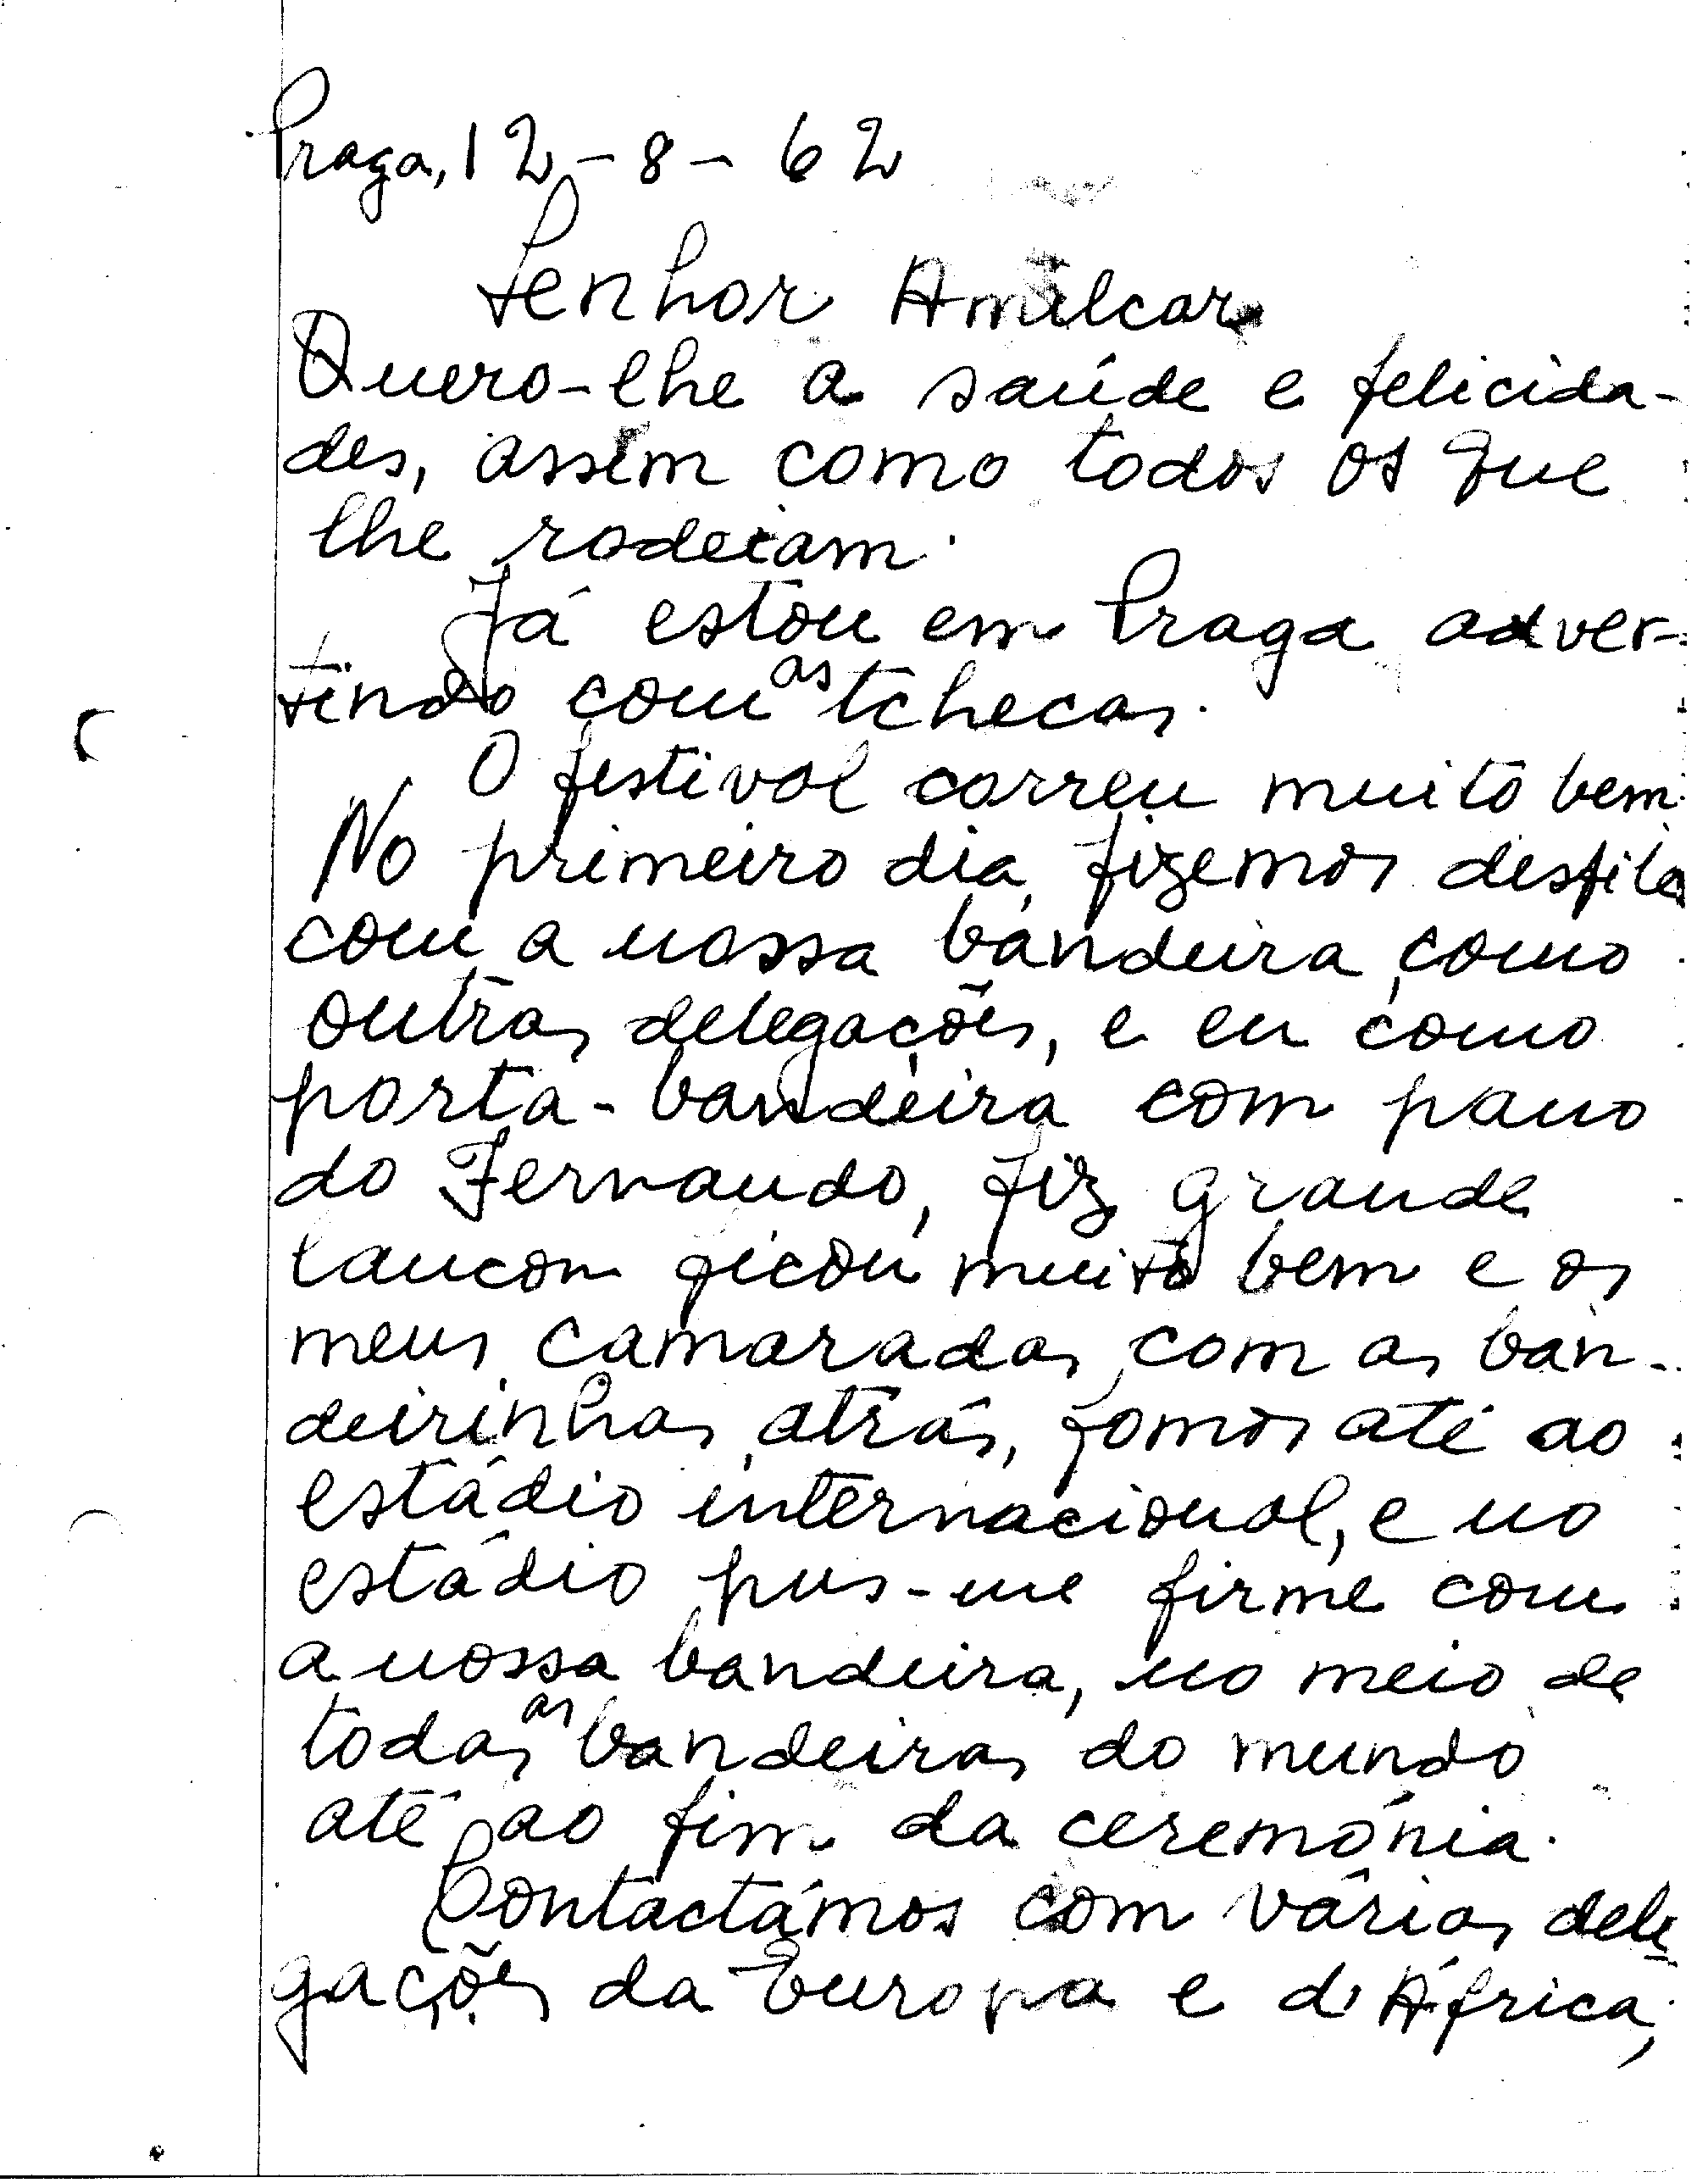 Praga, 12-8-62
Senhor Amilcar
Quero-lhe a saúde e felicida-
des, assim como todos os que
lhe rodeiam.
Já estou em Praga adver-
tindo com as tchecas.
O festival correu muito bem.
No primeiro dia, fizemos desfile
com a nossa bandeira, como
outras delegações, e eu como
porta-bandeira com pano
do Fernando, fiz grande
ficou muito bem e os
meus camaradas, com as ban-
deirinhas atrás, fomos até ao
estádio internacional, e no
estádio pus-me firme com
a nossa bandeira, no meio de
todas as bandeiras do mundo
até ao fim da ceremónia.
Contactámos com várias dele
gações da Europa e d'África,